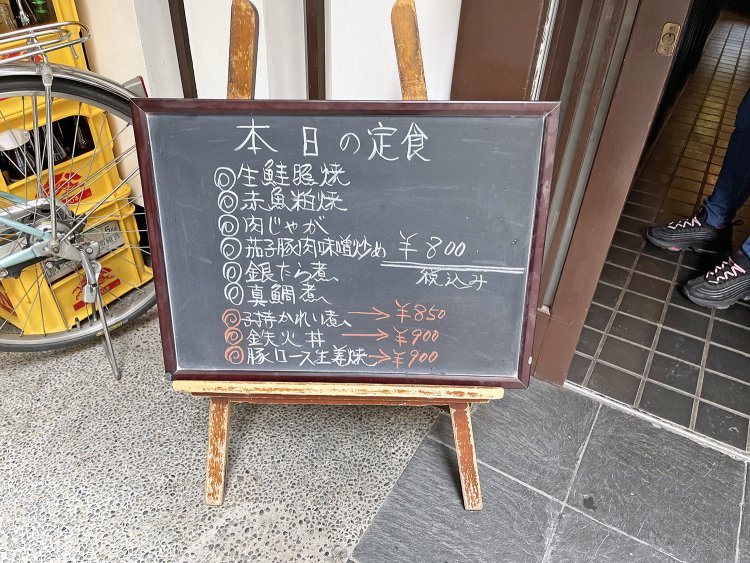 本日の定食
◎生鮭照焼
◎赤魚粕焼
◎肉じゃが
◎茄子豚肉味噌炒め ¥800
税込み
◎銀だら煮
◎真鯛煮
◎子持かれい煮→¥850
◎鉄火丼→¥900
◎豚ロース生姜焼→¥900